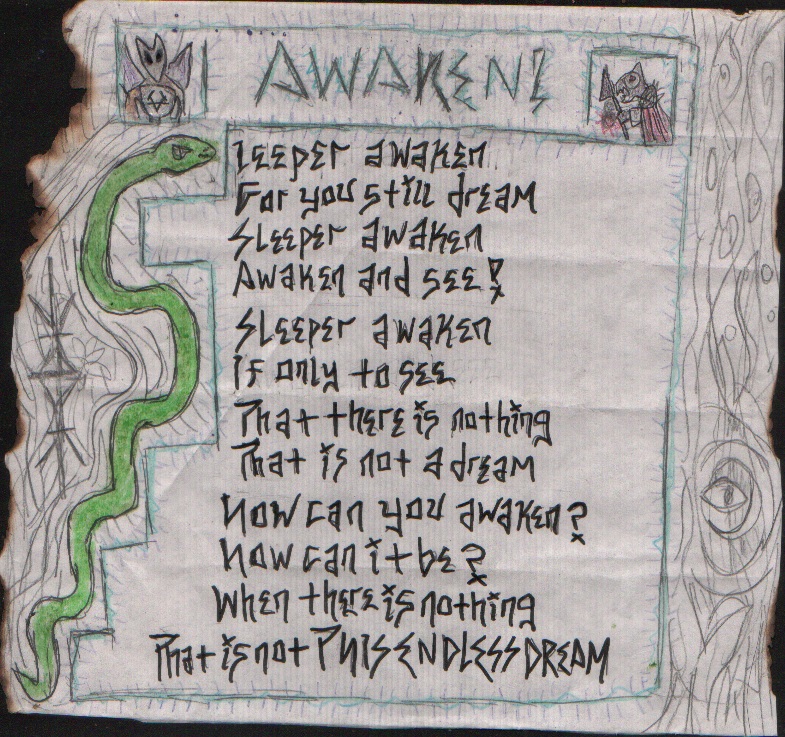 AWAKEN!
Sleeper awaken
For you still dream
Sleeper awaken
Awaken and see!
Sleeper awaken
If only to see
That there is nothing
That is not a dream
How can you awaken?
How can it be?
When there is nothing
That is not THIS ENDLESS DREAM